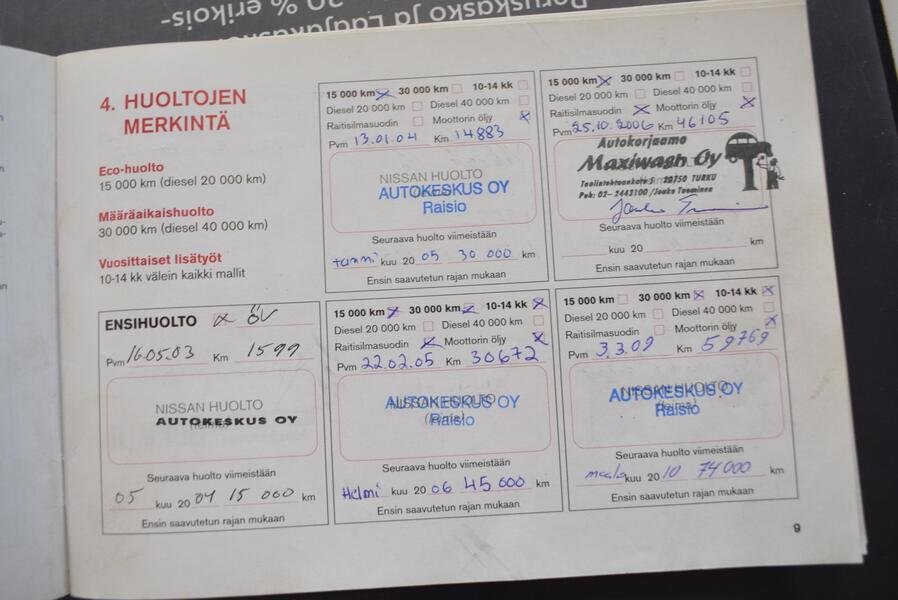 Peruskasko ja Laajakasko
% erikois-
4. HUOLTOJEN
MERKINTÄ
Eco-huolto
15 000 km (diesel 20 000 km)
Määräaikaishuolto
30 000 km (diesel 40 000 km)
Vuosittaiset lisätyöt
10-14 kk välein kaikki mallit
15 000 km 30 000 km 10-14 kk
Diesel 20 000 km Diesel 40 000 km
Raitisilmasuodin Moottorin öljy
Pvm 13.01.04 Km 14883
NISSAN HUOLTO
AUTOKESKUS OY
Raisio
Seuraava huolto viimeistään
tammi kuu 20 05 30 000 km
Ensin saavutetun rajan mukaan
15 000 km 30 000 km 10-14 kk
Diesel 20 000 km Diesel 40 000 km
Raitisilmasuodin Moottorin öljy
Pvm 25.10.2006 Km 46105
Autokorjaamo
Maxiwash Oy
20750 TURKU
Puh: 02-2443100 /Jouko Tuominen
Seuraava huolto viimeistään
kuu 20 km
Ensin saavutetun rajan mukaan
ENSIHUOLTO x ÖV
Pvm 16.05.03 Km 1599
NISSAN HUOLTO
AUTOKESKUS OY
Seuraava huolto viimeistään
05 kuu 20 04 15 000 km
Ensin saavutetun rajan mukaan
15 000 km 30 000 km 10-14 kk
Diesel 20 000 km Diesel 40 000 km
Raitisilmasuodin Moottorin öljy
Pvm 22.02.05 Km 30672
NISSAN HUOLTO
AUTOKESKUS OY
(leima)
Raisio
Seuraava huolto viimeistään
Helmi kuu 20 06 45 000 km
Ensin saavutetun rajan mukaan
15 000 km 30 000 km 10-14 kk
Diesel 20 000 km Diesel 40 000 km
Raitisilmasuodin Moottorin öljy
Pvm 3.3.09 Km 59769
NISSAN HUOLTO
AUTOKESKUS OY
(leima)
Raisio
Seuraava huolto viimeistään
maalis kuu 20 10 74 000 km
Ensin saavutetun rajan mukaan
9